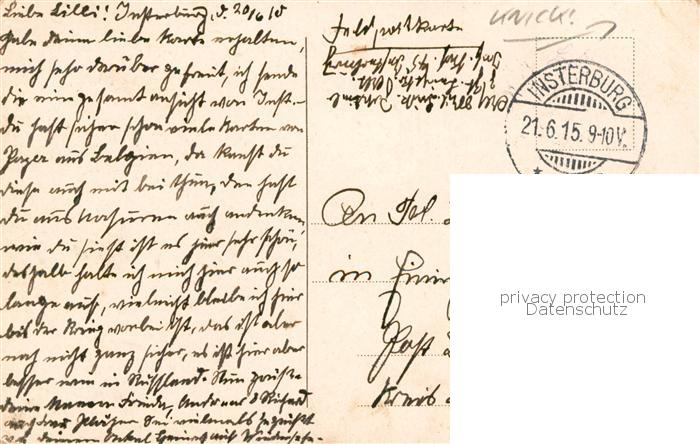 Liebe Lilli! Insterburg, d. 20/6 15
habe deine liebe Karte erhalten,
mich sehr darüber gefreut, ich sende
dir eine gesamt ansicht von Inst-
du hast sicher schon viele Karten von
aus Belgien, da kanst du
diese auch mit bei thun, dan hast
du aus auch andenken
wie du siehst ist es hier sehr schön,
deshalb halte ich mich hier auch so
lange auf, vielleicht bleibe ich hier
bis der Krieg vorbei ist, das ist aber
noch nicht ganz sicher, es ist hier aber
besser wie in Russland. Nun grüsse
deine Mama Frieda, und Richard
sei vielmals gegrüßt
von deinem Onkel auf Wiedersehn
Feldpostkarte
KNICK!
INSTERBURG
21.6.15.9-10V.
An Frl.
in
Post
Kreis
privacy protection
Datenschutz